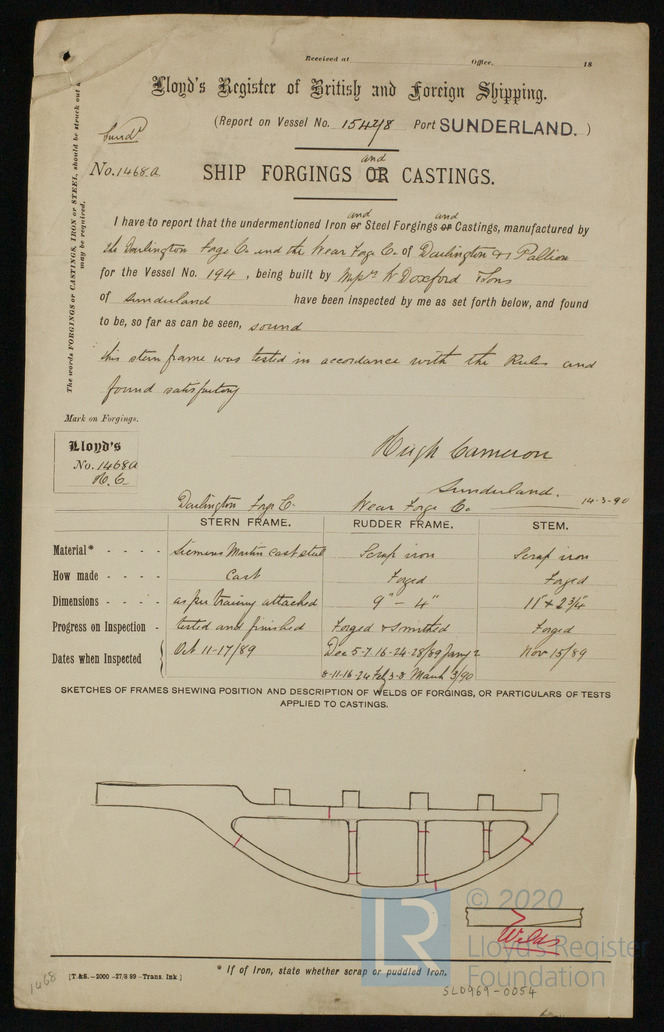 Received at Office. 18
Lloyd's Register of British and Foreign Shipping.
(Report on Vessel No. 15428 Port SUNDERLAND.)
Sundd
No. 1468a
and
SHIP FORGINGS OR CASTINGS.
The words FORGINGS or CASTINGS, IRON or STEEL, should be struck out a
may be required.
and and
I have to report that the undermentioned Iron or Steel Forgings or Castings, manufactured by
the Darlington Forge Co and the Wear Forge Co. of Darlington & Pallion
for the Vessel No. 194, being built by W Doxford & Sons
of Sunderland have been inspected by me as set forth below, and found
to be, so far as can be seen, sound
this stern frame was tested in accordance with the Rules and
found satisfactory
Mark on Forgings.
Lloyd's
No. 1468a
H. C.
Hugh Cameron
Sunderland. 14-3-90
Darlington Forge Co. Wear Forge Co.
STERN FRAME. RUDDER FRAME. STEM.
Material* - - - - Siemens Martin cast steel Scrap iron Scrap iron
How made - - - - Cast Forged Forged
Dimensions - - - - as per tracing attached 9" - 4" 11" x 2 3/4"
Progress on Inspection - tested and finished Forged & smithed Forged
Dates when Inspected Oct 11-17/89 Dec 5-7 16-24-28/89 Jany 2 Nov 15/89
8-11-16-24 Feb 3-8 March 3/90
SKETCHES OF FRAMES SHEWING POSITION AND DESCRIPTION OF WELDS OF FORGINGS, OR PARTICULARS OF TESTS
APPLIED TO CASTINGS.
Welds
© 2020
LR
Lloyd's Register
Foundation
* If of Iron, state whether scrap or puddled Iron.
[T.&S.—2000—27/8 89—Trans. Ink]
1468
SLD969-0054